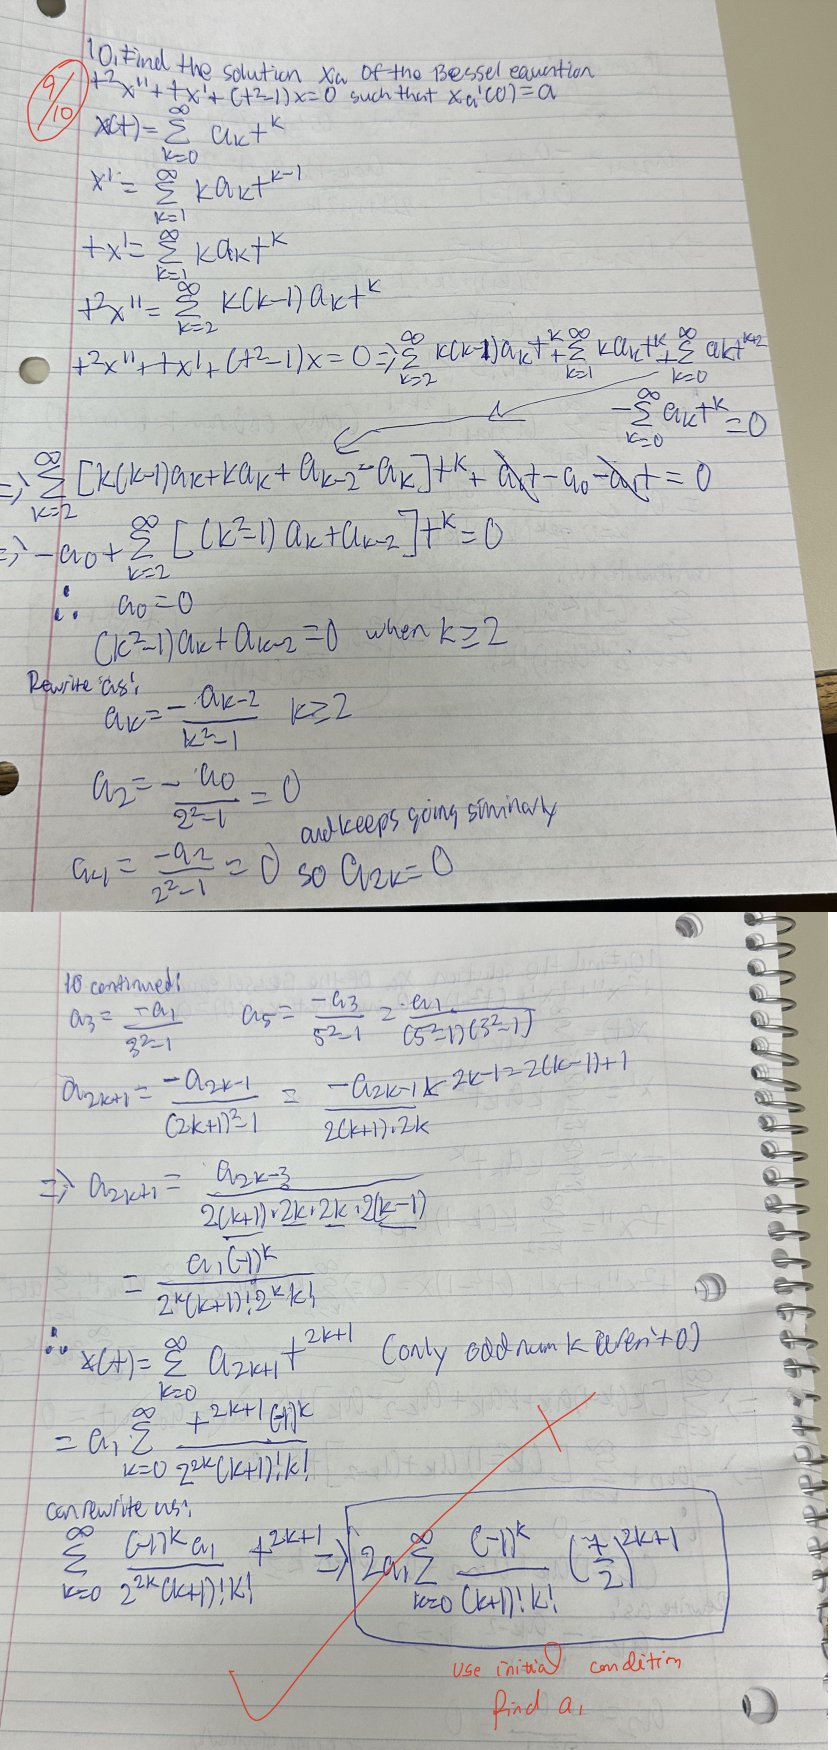 10. Find the solution xa of the Bessel equation
9/10
t²x''+tx'+(t²-1)x=0 such that xa'(0)=a
x(t)=∑_{k=0}^{∞} a_k t^k
x'=∑_{k=1}^{∞} k a_k t^{k-1}
tx'=∑_{k=1}^{∞} k a_k t^k
t²x''=∑_{k=2}^{∞} k(k-1) a_k t^k
t²x''+tx'+(t²-1)x=0 ⇒ ∑_{k=2}^{∞} k(k-1)a_k t^k + ∑_{k=1}^{∞} k a_k t^k + ∑_{k=0}^{∞} a_k t^{k+2}
-∑_{k=0}^{∞} a_k t^k = 0
⇒ ∑_{k=2}^{∞} [k(k-1)a_k+k a_k+a_{k-2}-a_k] t^k + a_1 t - a_0 - a_1 t = 0
⇒ -a_0+∑_{k=2}^{∞} [(k²-1)a_k+a_{k-2}] t^k=0
∴ a_0=0
(k²-1)a_k+a_{k-2}=0 when k≥2
Rewrite as:
a_k=-a_{k-2}/(k²-1) k≥2
a_2=-a_0/(2²-1)=0
and keeps going similarly
a_4=-a_2/(2²-1)=0 so a_{2k}=0
10 continued:
a_3=-a_1/(3²-1) a_5=-a_3/(5²-1)=a_1/((5²-1)(3²-1))
a_{2k+1}=-a_{2k-1}/((2k+1)²-1)=-a_{2k-1}/(2(k+1)·2k) ← 2k-1=2(k-1)+1
⇒ a_{2k+1}=a_{2k-3}/(2(k+1)·2k·2k·2(k-1))
=a_1(-1)^k/(2^k(k+1)!2^k k!)
∴ x(t)=∑_{k=0}^{∞} a_{2k+1} t^{2k+1} (only odd num k aren't 0)
=a_1 ∑_{k=0}^{∞} t^{2k+1}(-1)^k/(2^{2k}(k+1)!k!)
can rewrite as:
∑_{k=0}^{∞} (-1)^k a_1/(2^{2k}(k+1)!k!) t^{2k+1} ⇒ 2a_1 ∑_{k=0}^{∞} (-1)^k/((k+1)!k!) (t/2)^{2k+1}
use initial condition
find a_1